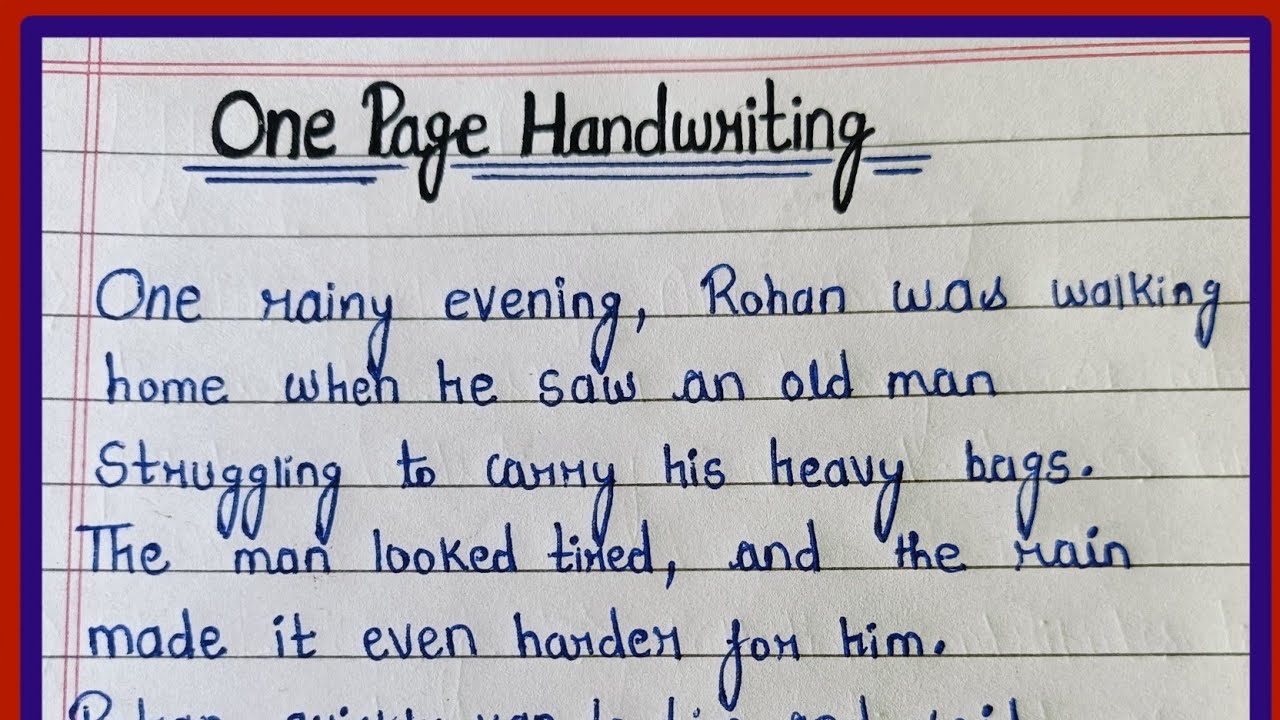 One Page Handwriting
One rainy evening, Rohan was walking
home when he saw an old man
Struggling to carry his heavy bags.
The man looked tired, and the rain
made it even harder for him.
Rohan quickly ran to him and